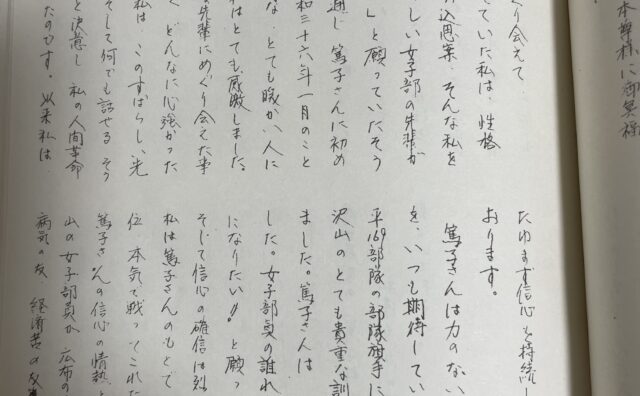 本尊様に御冥福
ぐり会えて
ていた私は、性格
込思案、そんな私を
しい女子部の先輩が
」と願っていたそう
通じ篤子さんに初め
和三十六年一月のこと
な、とても暖かい人に
はとても感激しました。
先輩にめぐり会えた事
く、どんなに心強かった
私は、このすばらしい先
そして何でも話せる そう
と決意し 私の人間革命
たのです。以来私は
たゆまず信心を持続し
おります。
篤子さんは力のない
を、いつも期待してい
平169部隊の部隊旗手に
沢山のとても貴重な訓
ました。篤子さんは
した。女子部員の誰れ
になりたい!!と願っ
そして信心の確信は烈
私は篤子さんのもとで
位、本気で戦ってこれた
篤子さんの信心の情熱と
山の女子部員が 広布の
病気の友、経済苦の友